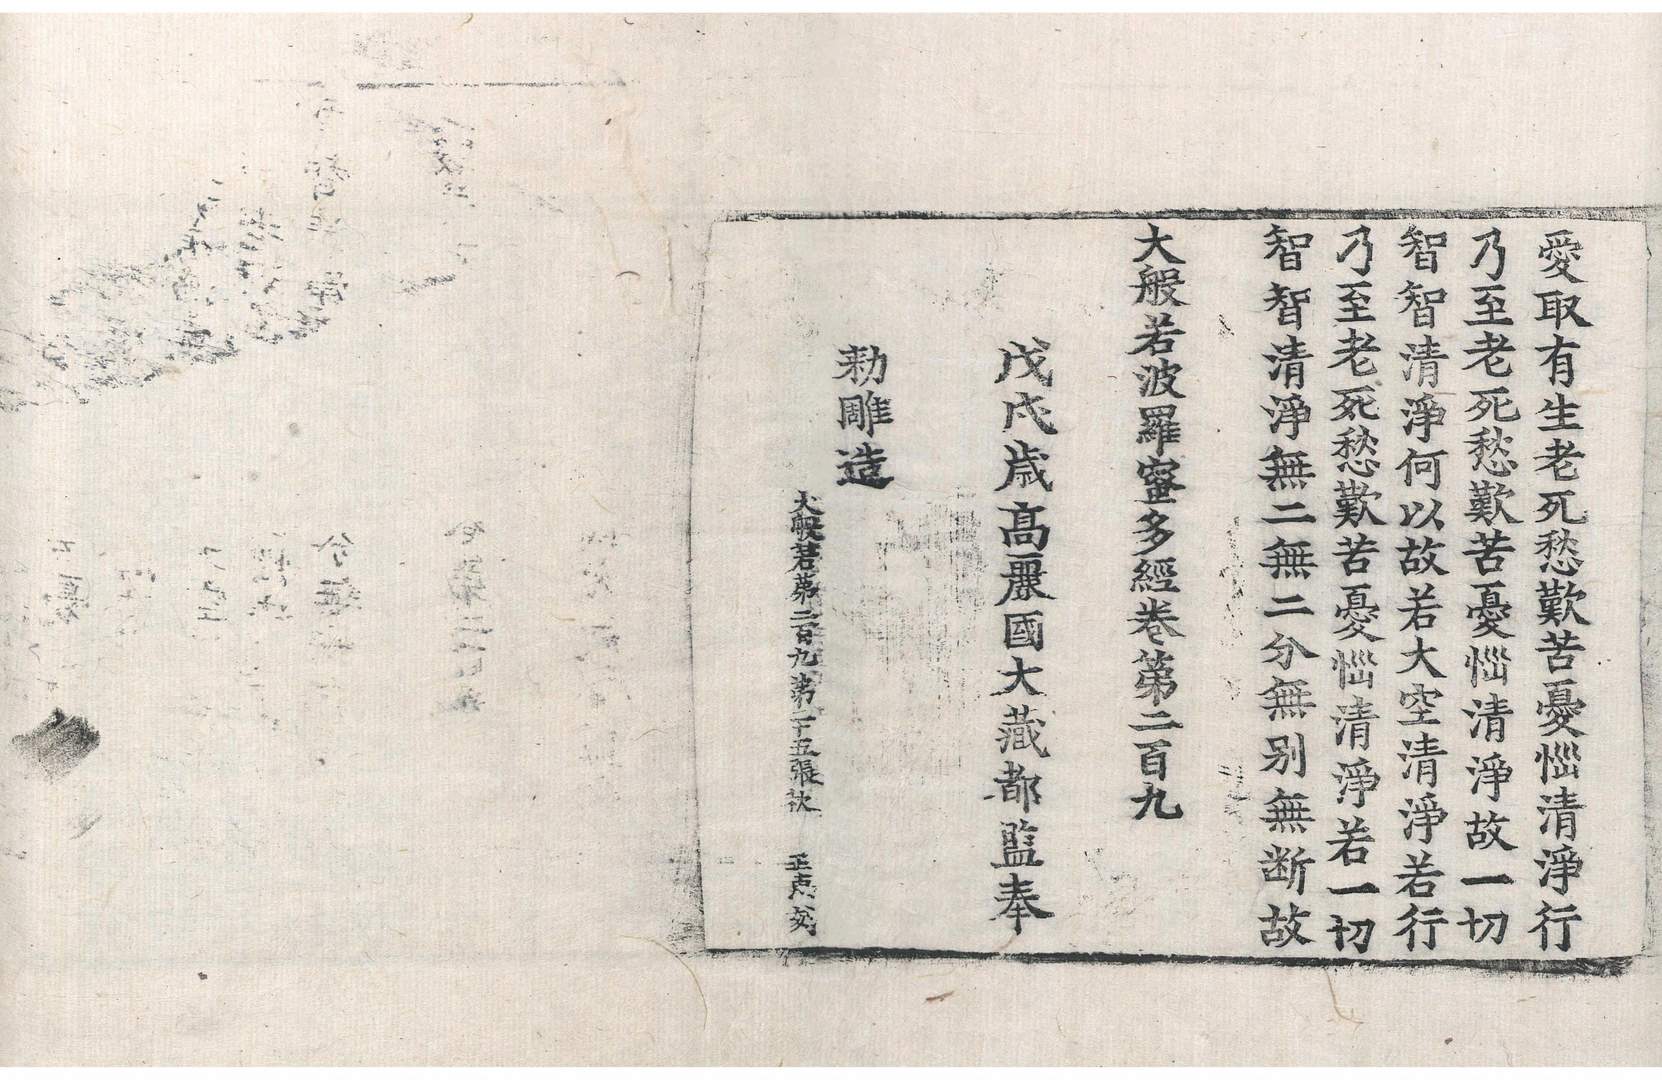 愛取有生老死愁歎苦憂惱清淨行
乃至老死愁歎苦憂惱清淨故一切
智智清淨何以故若大空清淨若行
乃至老死愁歎苦憂惱清淨若一切
智智清淨無二無二分無別無斷故
大般若波羅蜜多經卷第二百九
戊戌歳高麗國大藏都監奉
勅雕造
大般若第二百九第二十五張